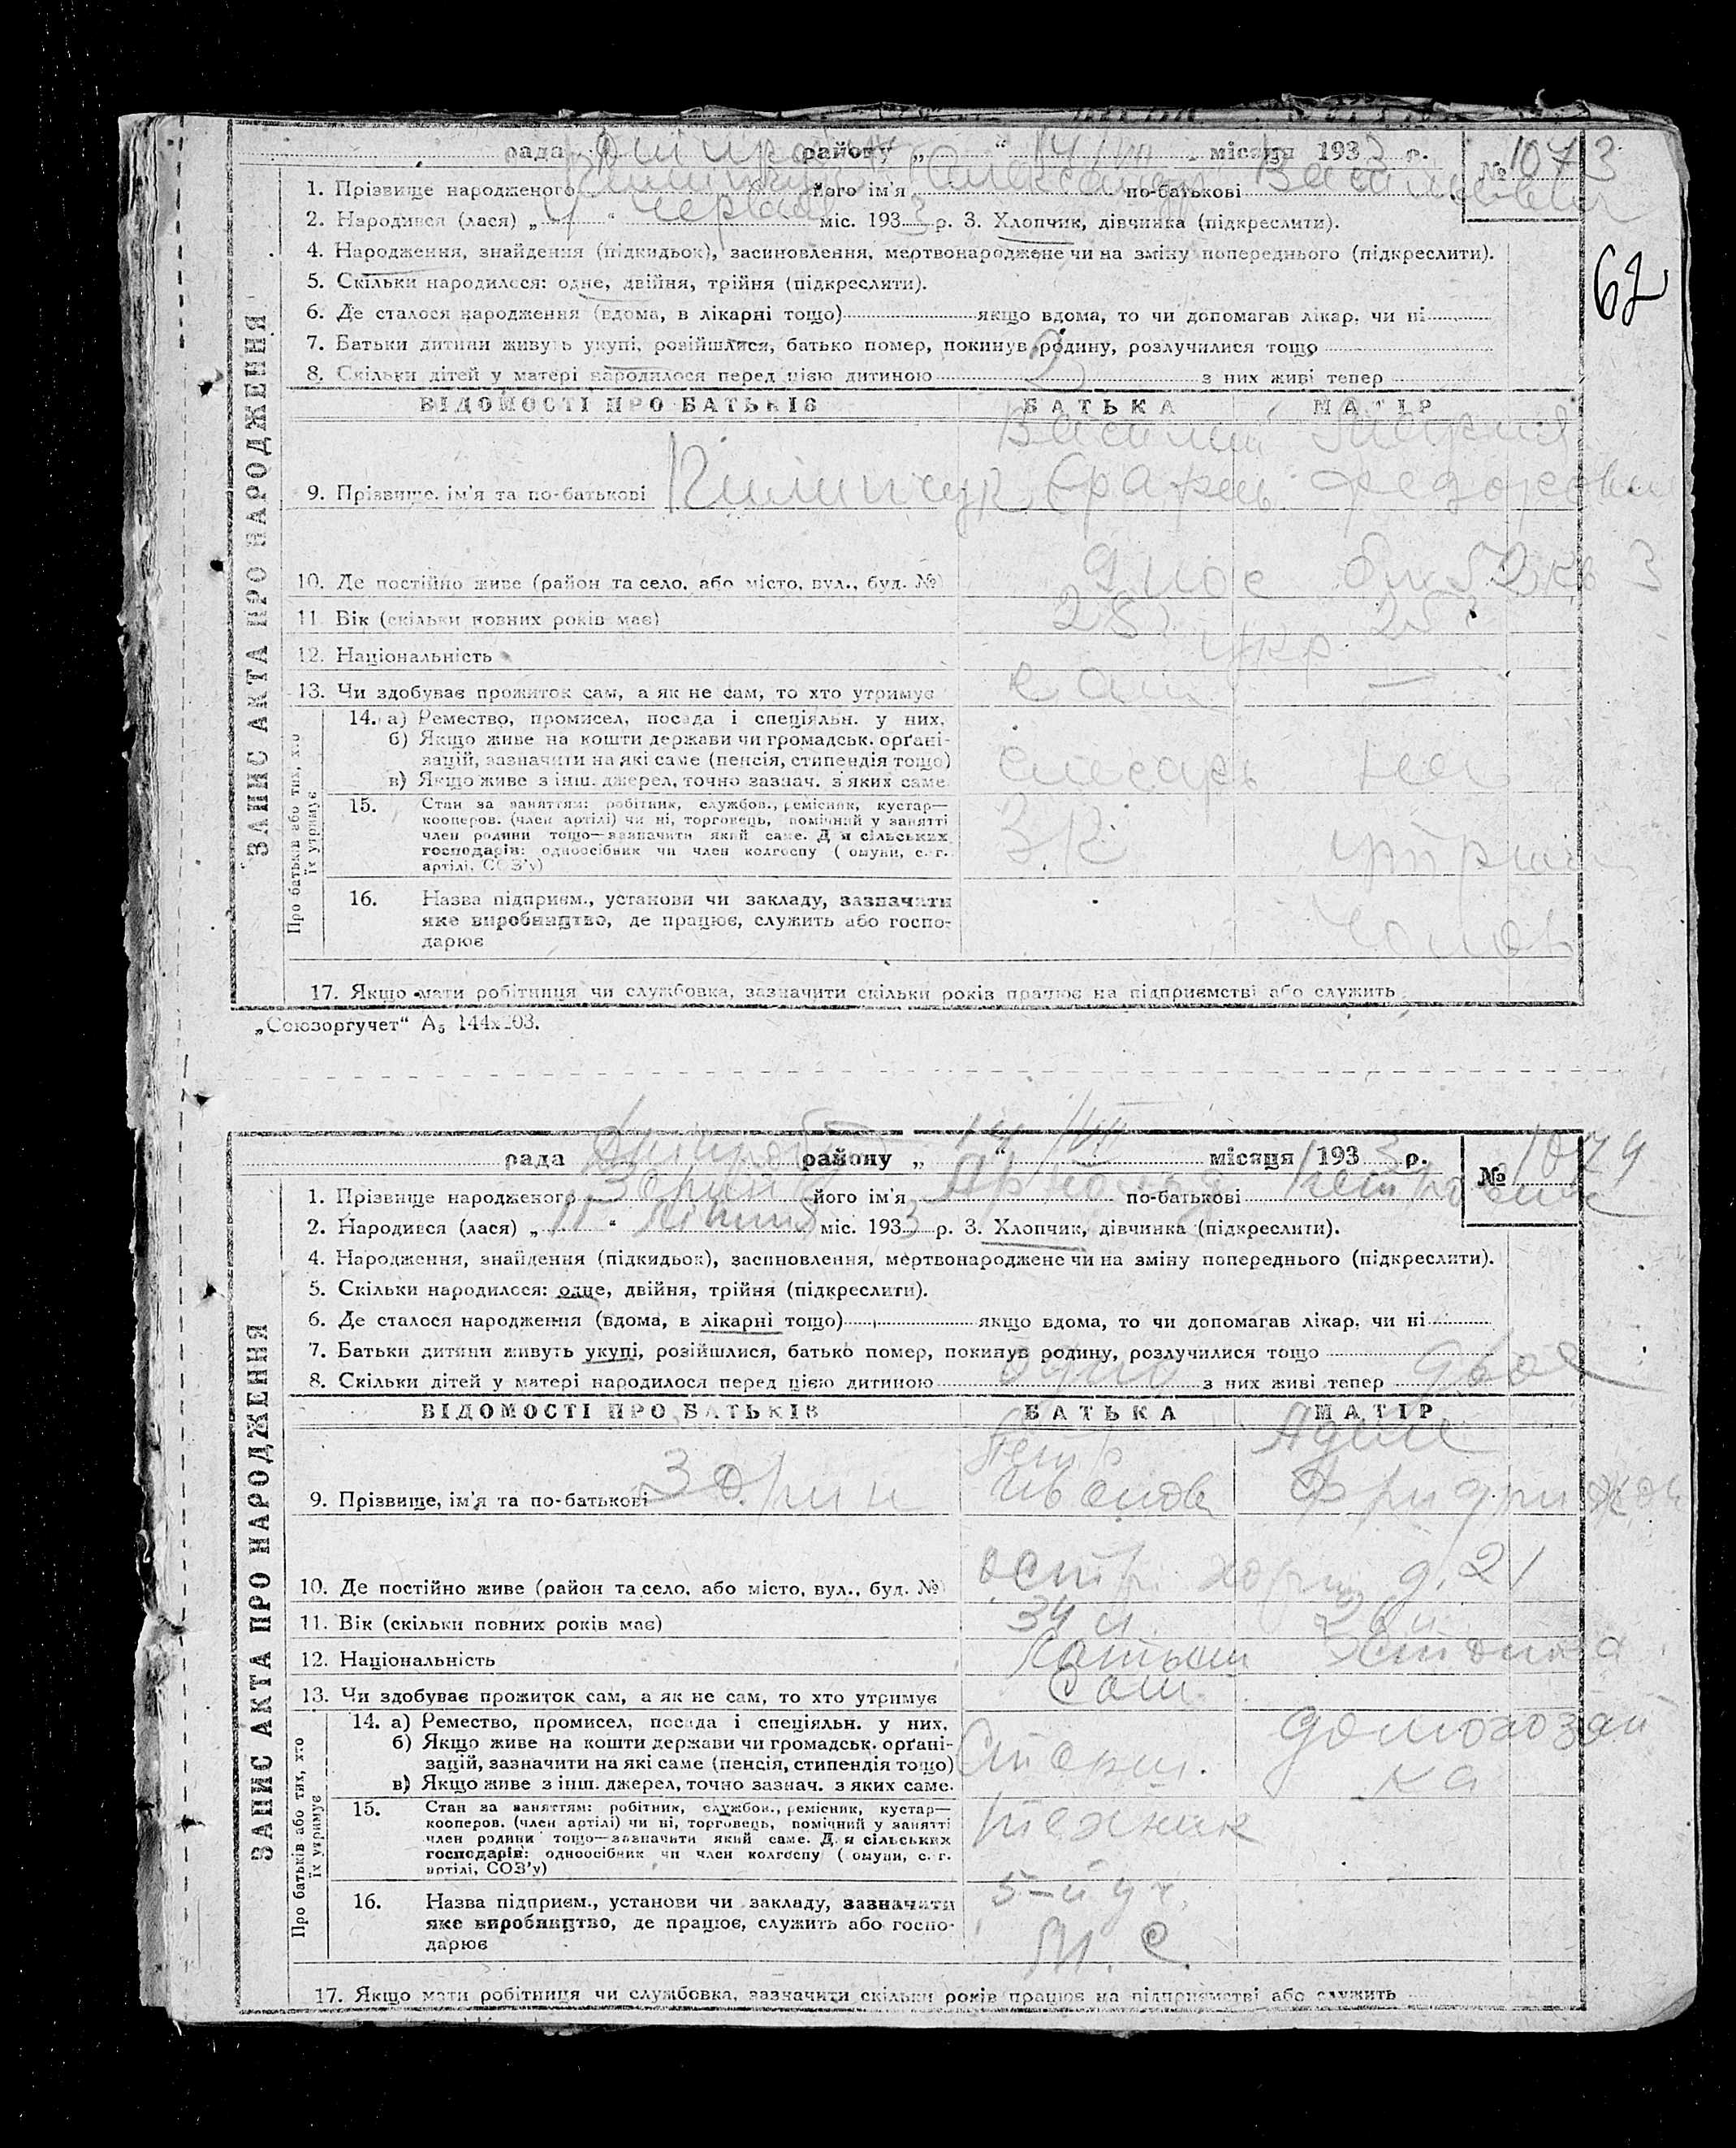 рада Дніпров району „14“ VII місяця 1933 р. № 1073
1. Прізвище народженого Килипчук його ім'я Олександр по-батькові Васильович
2. Народився (лася) „ “ червня міс. 1933 р. 3. Хлопчик, дівчинка (підкреслити).
62
4. Народження, знайдення (підкидьок), засиновлення, мертвонароджене чи на зміну попереднього (підкреслити).
5. Скільки народилося: одне, двійня, трійня (підкреслити).
6. Де сталося народження (вдома, в лікарні тощо) якщо вдома, то чи допомагав лікар, чи ні
7. Батьки дитини живуть укупі, розійшлися, батько помер, покинув родину, розлучилися тощо
8. Скільки дітей у матері народилося перед цією дитиною 2 з них живі тепер
ВІДОМОСТІ ПРО БАТЬКІВ БАТЬКА МАТІР
Василий Мария
9. Прізвище, ім'я та по-батькові Килипчук
10. Де постійно живе (район та село, або місто, вул., буд. №) 9 пос 52 кв 3
11. Вік (скільки повних років має) 28 25
12. Національність укр
13. Чи здобуває прожиток сам, а як не сам, то хто утримує сам —
14. а) Ремество, промисел, посада і спеціяльн. у них.
б) Якщо живе на кошти держави чи громадськ. орґані-
зацій, зазначити на які саме (пенсія, стипендія тощо)
в) Якщо живе з інш. джерел, точно зазнач. з яких саме.
слесарь
15. Стан за заняттям: робітник, службов., ремісник, кустар—
кооперов. (член артілі) чи ні, торговець, помічний у занятті
член родини тощо—зазначити який саме. Для сільських
господарів: одноосібник чи член колгоспу (комуни, с.-г.
артілі, СОЗ'у)
16. Назва підприєм., установи чи закладу, зазначати
яке виробництво, де працює, служить або госпо-
дарює
17. Якщо мати робітниця чи службовка, зазначити скільки років працює на підприємстві або служить
„Союзоргучет“ А₅ 144х203.
ЗАПИС АКТА ПРО НАРОДЖЕННЯ
Про батьків або тих, хто
їх утримує
рада Дніпров району „14“ VII місяця 1933 р. № 1074
1. Прізвище народженого його ім'я по-батькові Петрович
2. Народився (лася) „11“ липня міс. 1933 р. 3. Хлопчик, дівчинка (підкреслити).
4. Народження, знайдення (підкидьок), засиновлення, мертвонароджене чи на зміну попереднього (підкреслити).
5. Скільки народилося: одне, двійня, трійня (підкреслити).
6. Де сталося народження (вдома, в лікарні тощо) якщо вдома, то чи допомагав лікар, чи ні
7. Батьки дитини живуть укупі, розійшлися, батько помер, покинув родину, розлучилися тощо
8. Скільки дітей у матері народилося перед цією дитиною одно з них живі тепер двое
ВІДОМОСТІ ПРО БАТЬКІВ БАТЬКА МАТІР
Петр
9. Прізвище, ім'я та по-батькові Иванов
10. Де постійно живе (район та село, або місто, вул., буд. №) остр. хорт. д. 21
11. Вік (скільки повних років має) 34 л
12. Національність Латыш Эстонка
13. Чи здобуває прожиток сам, а як не сам, то хто утримує Сам.
14. а) Ремество, промисел, посада і спеціяльн. у них.
б) Якщо живе на кошти держави чи громадськ. орґані-
зацій, зазначити на які саме (пенсія, стипендія тощо)
в) Якщо живе з інш. джерел, точно зазнач. з яких саме.
домохозяй
ка
15. Стан за заняттям: робітник, службов., ремісник, кустар—
кооперов. (член артілі) чи ні, торговець, помічний у занятті
член родини тощо—зазначити який саме. Для сільських
господарів: одноосібник чи член колгоспу (комуни, с.-г.
артілі, СОЗ'у)
техник
16. Назва підприєм., установи чи закладу, зазначати
яке виробництво, де працює, служить або госпо-
дарює
5-й уч.
М. С.
17. Якщо мати робітниця чи службовка, зазначити скільки років працює на підприємстві або служить
ЗАПИС АКТА ПРО НАРОДЖЕННЯ
Про батьків або тих, хто
їх утримує